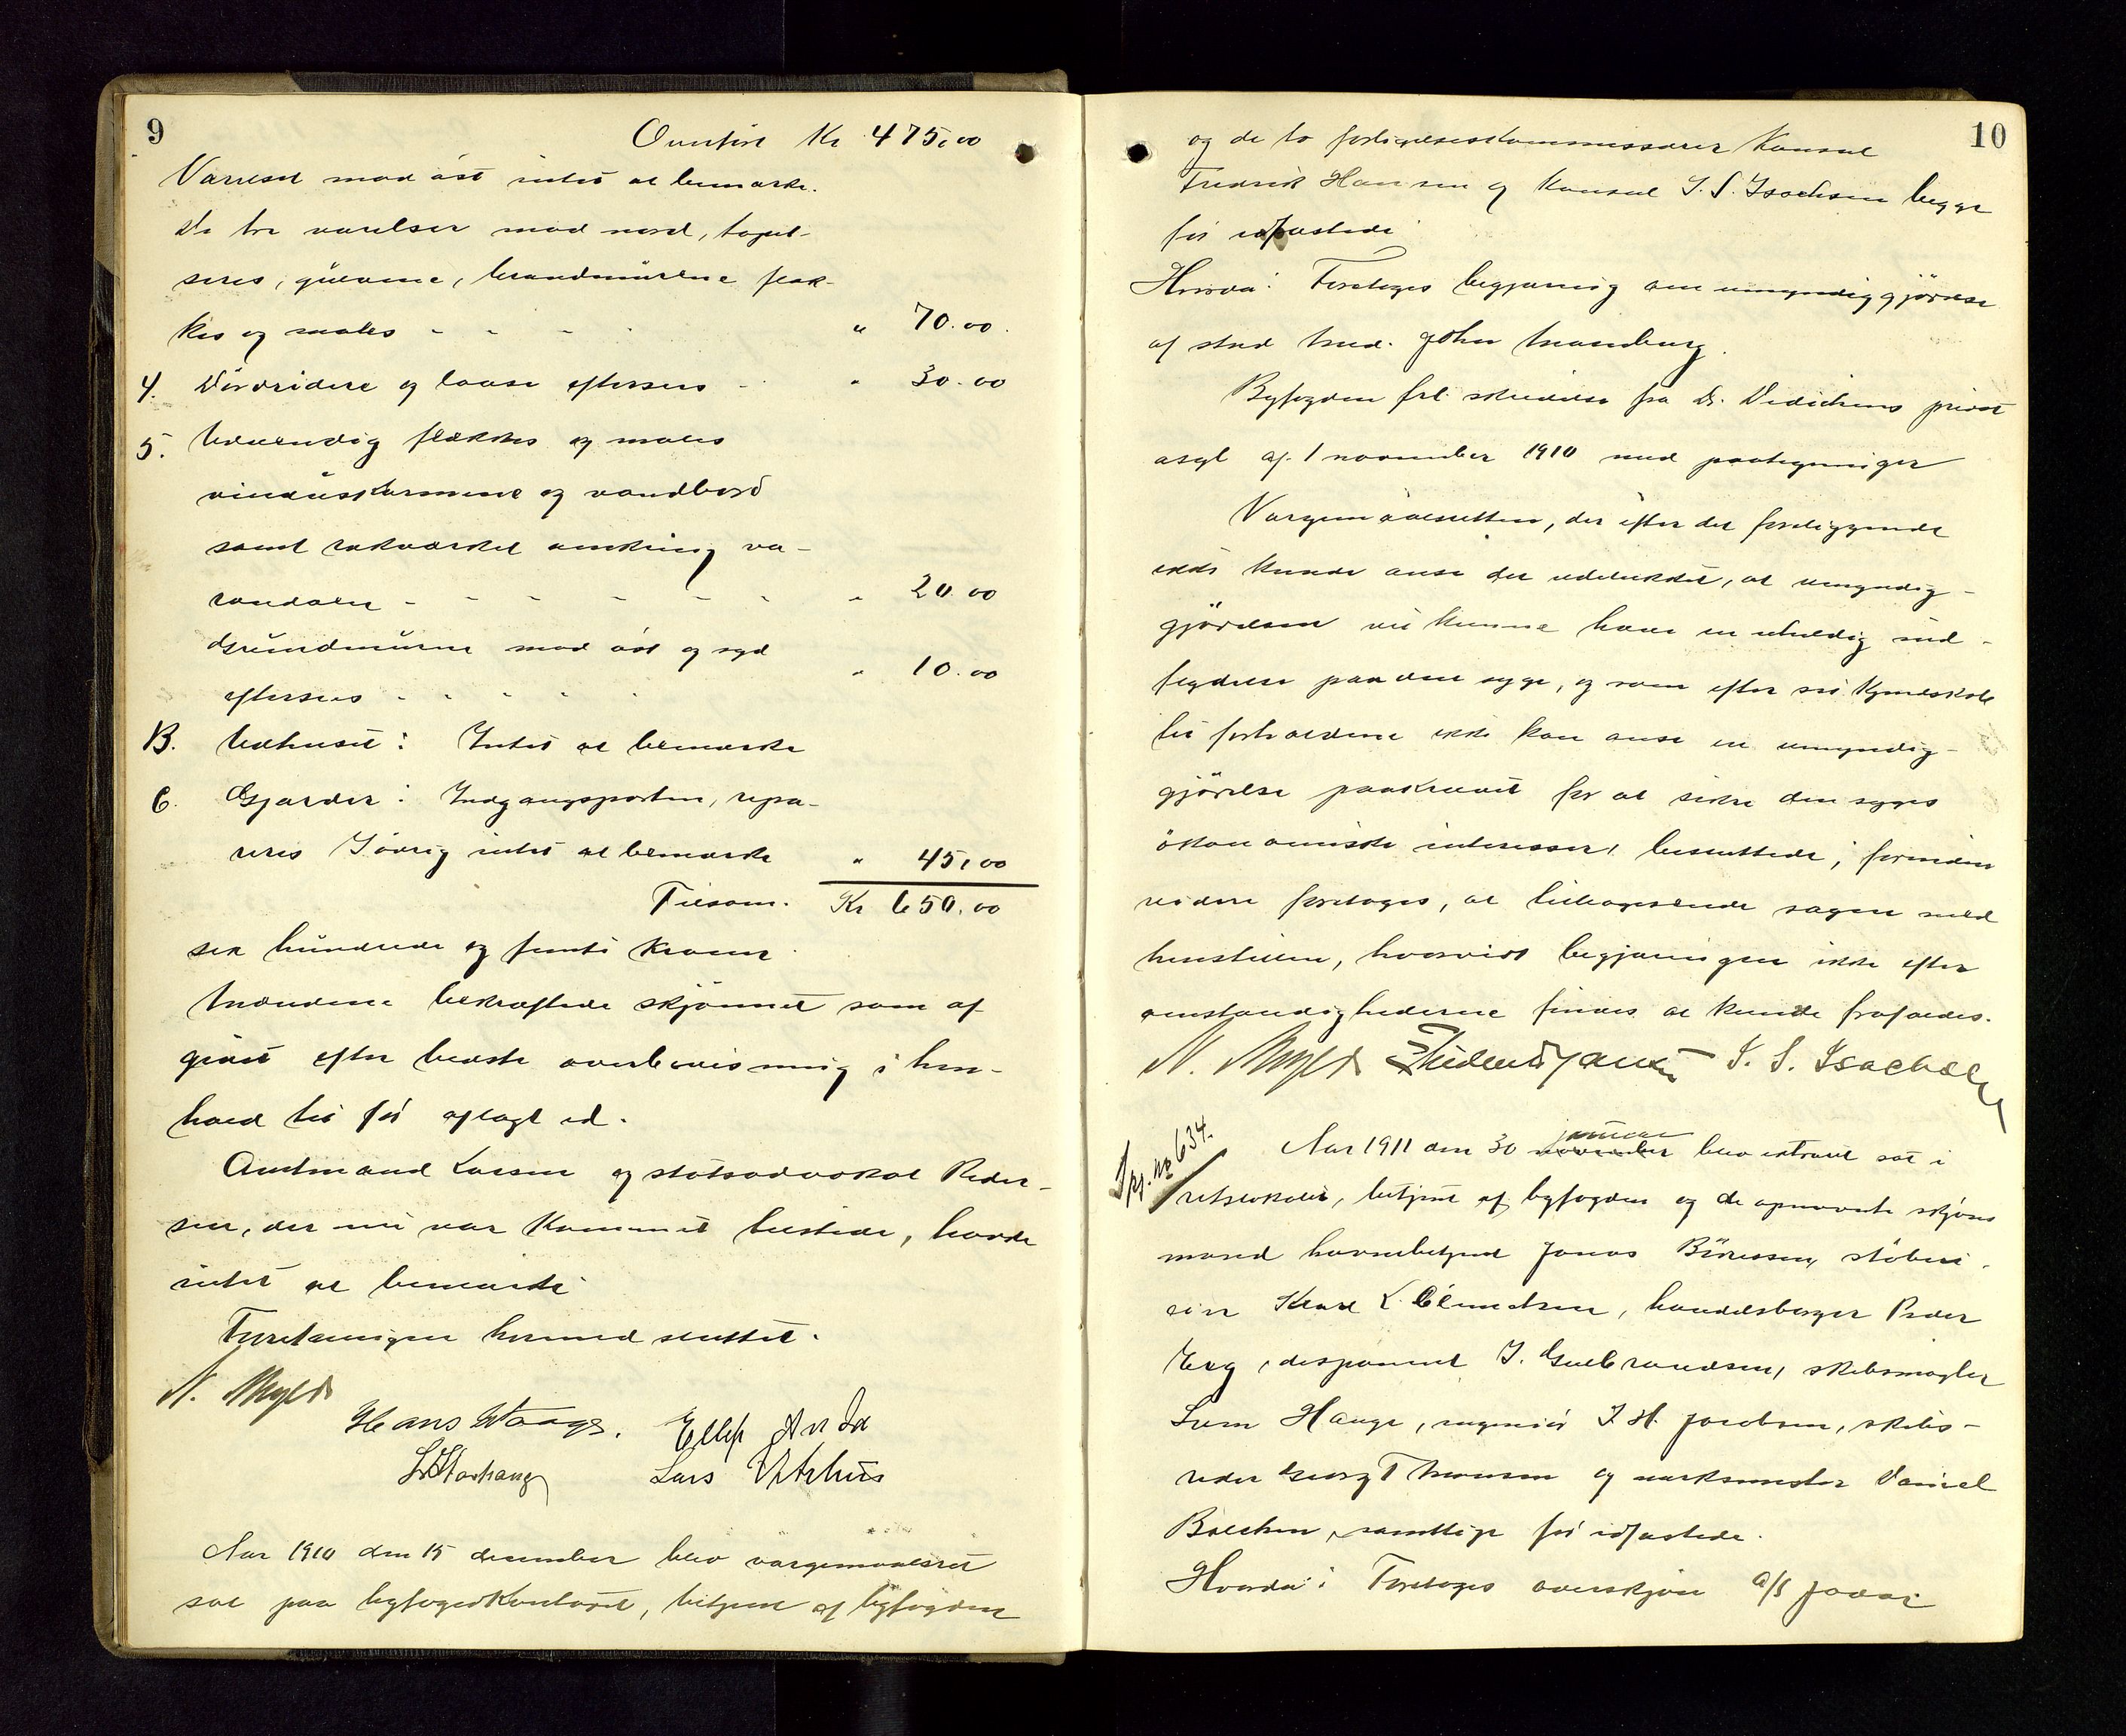 9
Overført Kr 475,00
Værelset mod øst intet at bemærke.
De tre værelser mod nord, tapet-
seres, gulvene, brandmurene flek-
kes og males - - - " 70.00
4. Dørvridere og laase eftersees - " 30.00
5. Udvendig flækkes og males
vinduskarmene og vandbord
samt rækværket omkring ve-
randaen - - - - - " 20.00
Grundmuren mod øst og syd
eftersees - - - - " 10.00
B. Udhuset: Intet at bemærke
C. Gjærder: Indgangsporten, repa-
reres Iøvrig intet at bemærke " 45,00
Tilsam. Kr 650.00
sex hundrede og femti kroner
Mændene bekræftede skjønnet som af-
givet efter bedste overbevisning i hen-
hold til før aflagt ed.
Amtmand Larsen og statsadvokat Peder-
sen, der nu var kommet tilstede, havde
intet at bemærke
Forretningen hermed sluttet.
N.
Hans Waage. Ellef
Lars
Aar 1910 den 15 december blev værgemaalsret
sat paa byfogedkontoret, betjent af byfogden
10
og de to forligelseskommissærer Konsul
Fredrik Hansen og Konsul I. S. Isachsen begge
før edfæstede
Hvorda: Foretoges begjæring om umyndiggjørelse
af stud med. John
Byfogden frl. skrivelse fra Dr. Dedichens privat
asyl af 1 november 1910 med paategninger
Værgemaalsretten, der efter det foreliggende
ikke kunde anse det udelukket, at umyndig-
gjørelsen vil kunne have en uheldig ind-
flydelse paa den syge, og som efter sit kjendskab
til forholdene ikke kan anse en umyndig-
gjørelse paakrævet for at sikre den syges
økonomiske interesser, besluttede, forinden
videre foretoges, at tilbagesende sagen med
henstillen, hvorvidt begjæringen ikke efter
omstændighederne findes at kunde frafaldes.
N. Fredrik Hansen I. S. Isachsen
Spj. no 634.
januar
Aar 1911 den 30 november blev extraret sat i
retslokalet, betjent af byfogden og de opnævnte skjøns
mænd havnebetjent Jonas Børessen, støberi
eier Knud L. Clemetsen, handelsborger Peder
Eeg, disponent I. Gulbrandsen, skibsmægler
Sven Hauge, ingeniør I. H. Jacobsen, skibs-
reder Georg Thomsen og verksmester Daniel
samtlige før edfæstede.
Hvorda: Foretoges overskjøn A/S